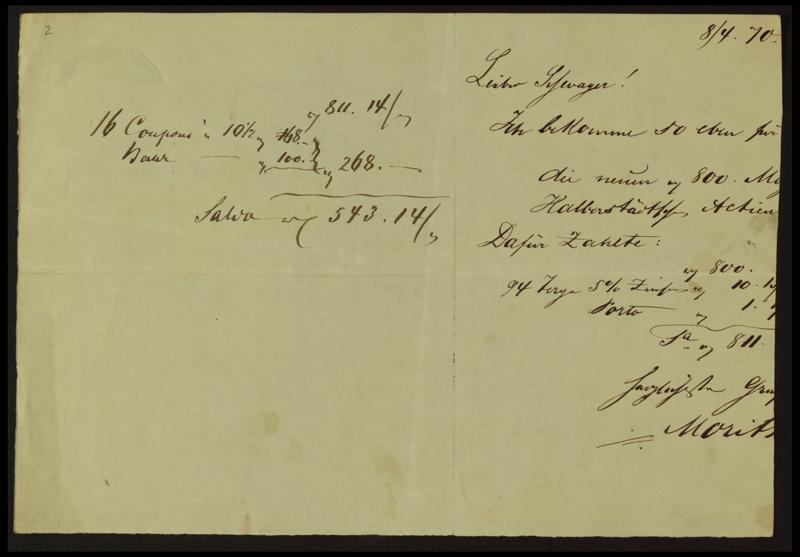 2
811. 14/
16 Coupons à 10½ 168.–
Baar — 100. 268. —
Saldo 543. 14/
8/4. 70.
Lieber Schwager!
Ich bekomme so eben für
die neuen 800. Mg
Halberstädtsche Actien
Dafür Zahlte:
800.
94 Tage 5% Zinsen 10.
Porto 1.
Sa 811.
herzlichste Gru
Moritz